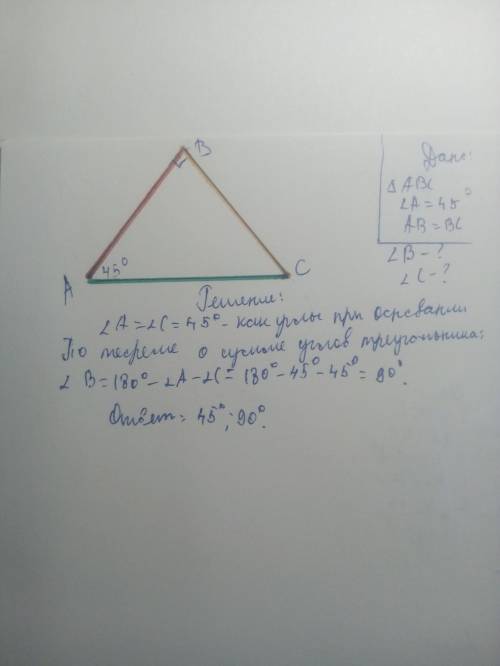 B
Дано:
△ABC
∠A=45°
AB=BC
∠B-?
∠C-?
45°
A
C
Решение:
∠A=∠C=45°- как углы при основании
По теореме о сумме углов треугольника:
∠B=180°-∠A-∠C=180°-45°-45°=90°.
Ответ: 45°; 90°.